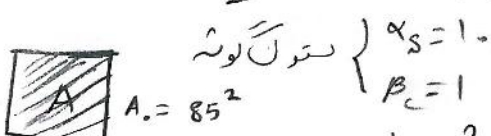 ستون گوشه { αs = 10
βc = 1
A A. = 85²